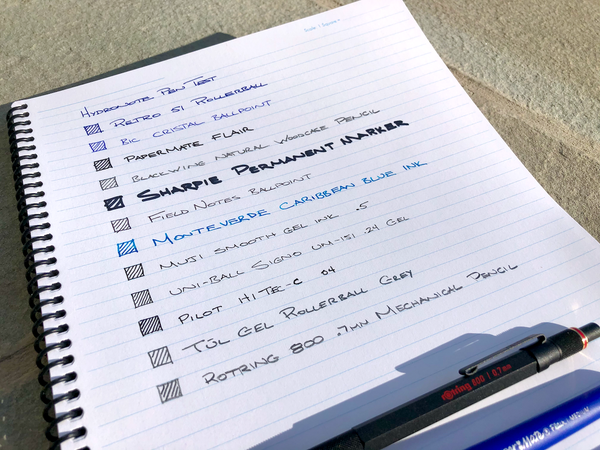 Hydronote Pen Test
Retro 51 Rollerball
Bic Cristal Ballpoint
Papermate Flair
Blackwing Natural Woodcase Pencil
Sharpie Permanent Marker
Field Notes Ballpoint
Monteverde Caribbean Blue Ink
Muji Smooth Gel Ink .5
Uni-Ball Signo UM-151 .24 Gel
Pilot Hi Tec-C 04
Tül Gel Rollerball Grey
Rotring 800 .7mm Mechanical Pencil
rotring 800 | 0.7mm